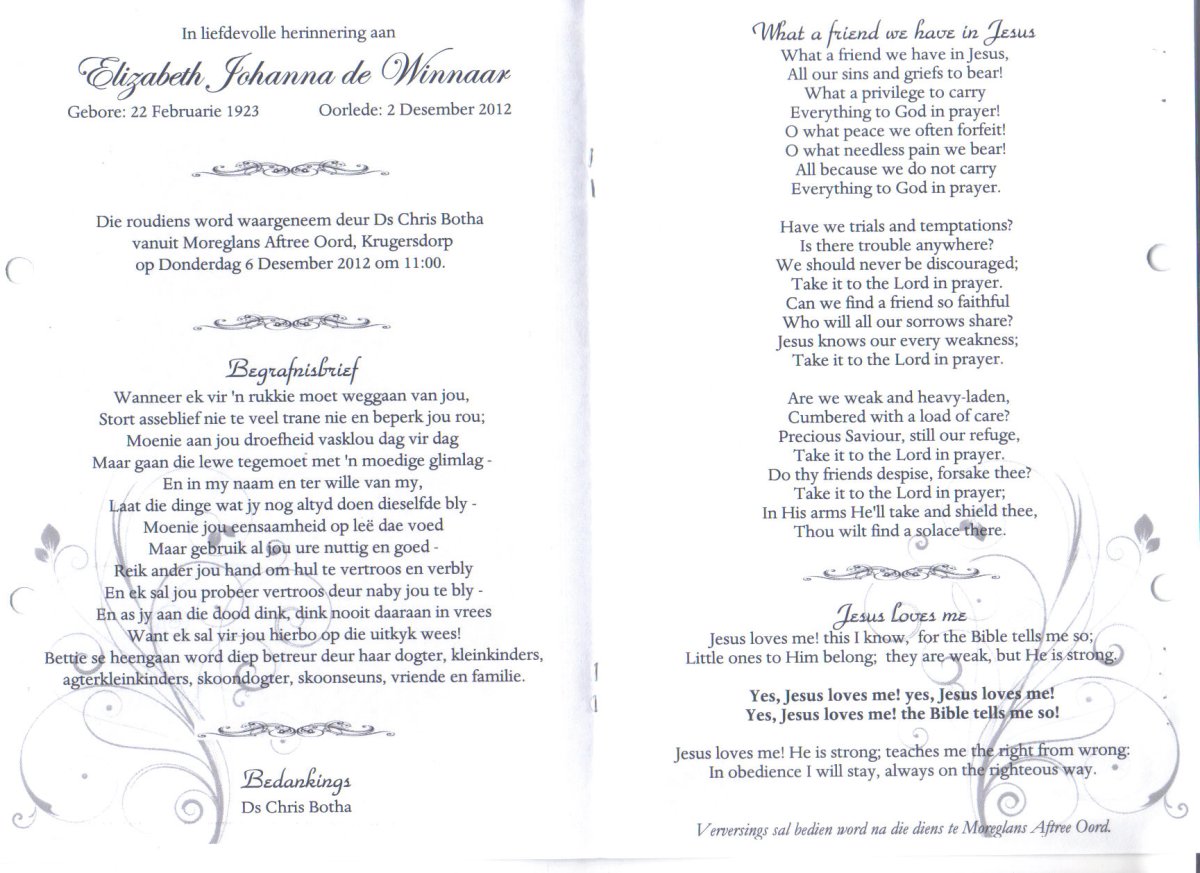 In liefdevolle herinnering aan
Elizabeth Johanna de Winnaar
Gebore: 22 Februarie 1923 Oorlede: 2 Desember 2012
Die roudiens word waargeneem deur Ds Chris Botha
vanuit Moreglans Aftree Oord, Krugersdorp
op Donderdag 6 Desember 2012 om 11:00.
Begrafnisbrief
Wanneer ek vir 'n rukkie moet weggaan van jou,
Stort asseblief nie te veel trane nie en beperk jou rou;
Moenie aan jou droefheid vasklou dag vir dag
Maar gaan die lewe tegemoet met 'n moedige glimlag -
En in my naam en ter wille van my,
Laat die dinge wat jy nog altyd doen dieselfde bly -
Moenie jou eensaamheid op leë dae voed
Maar gebruik al jou ure nuttig en goed -
Reik ander jou hand om hul te vertroos en verbly
En ek sal jou probeer vertroos deur naby jou te bly -
En as jy aan die dood dink, dink nooit daaraan in vrees
Want ek sal vir jou hierbo op die uitkyk wees!
Bettie se heengaan word diep betreur deur haar dogter, kleinkinders,
agterkleinkinders, skoondogter, skoonseuns, vriende en familie.
Bedankings
Ds Chris Botha
What a friend we have in Jesus
What a friend we have in Jesus,
All our sins and griefs to bear!
What a privilege to carry
Everything to God in prayer!
O what peace we often forfeit!
O what needless pain we bear!
All because we do not carry
Everything to God in prayer.
Have we trials and temptations?
Is there trouble anywhere?
We should never be discouraged;
Take it to the Lord in prayer.
Can we find a friend so faithful
Who will all our sorrows share?
Jesus knows our every weakness;
Take it to the Lord in prayer.
Are we weak and heavy-laden,
Cumbered with a load of care?
Precious Saviour, still our refuge,
Take it to the Lord in prayer.
Do thy friends despise, forsake thee?
Take it to the Lord in prayer;
In His arms He'll take and shield thee,
Thou wilt find a solace there.
Jesus loves me
Jesus loves me! this I know, for the Bible tells me so;
Little ones to Him belong; they are weak, but He is strong.
Yes, Jesus loves me! yes, Jesus loves me!
Yes, Jesus loves me! the Bible tells me so!
Jesus loves me! He is strong; teaches me the right from wrong:
In obedience I will stay, always on the righteous way.
Verversings sal bedien word na die diens te Moreglans Aftree Oord.